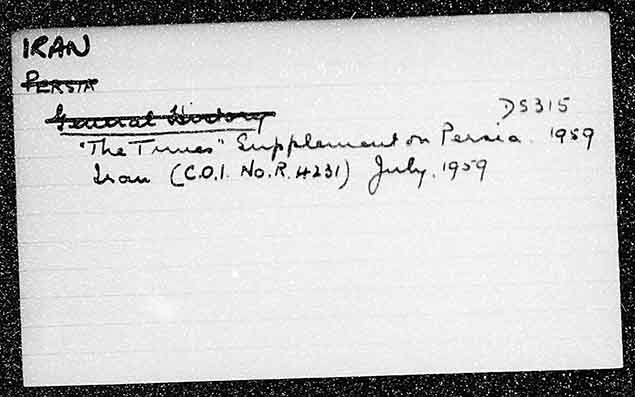 IRAN
PERSIA
General History
DS315
"The Times" Supplement on Persia. 1959
Iran (C.O.I. No. R. 4231) July, 1959